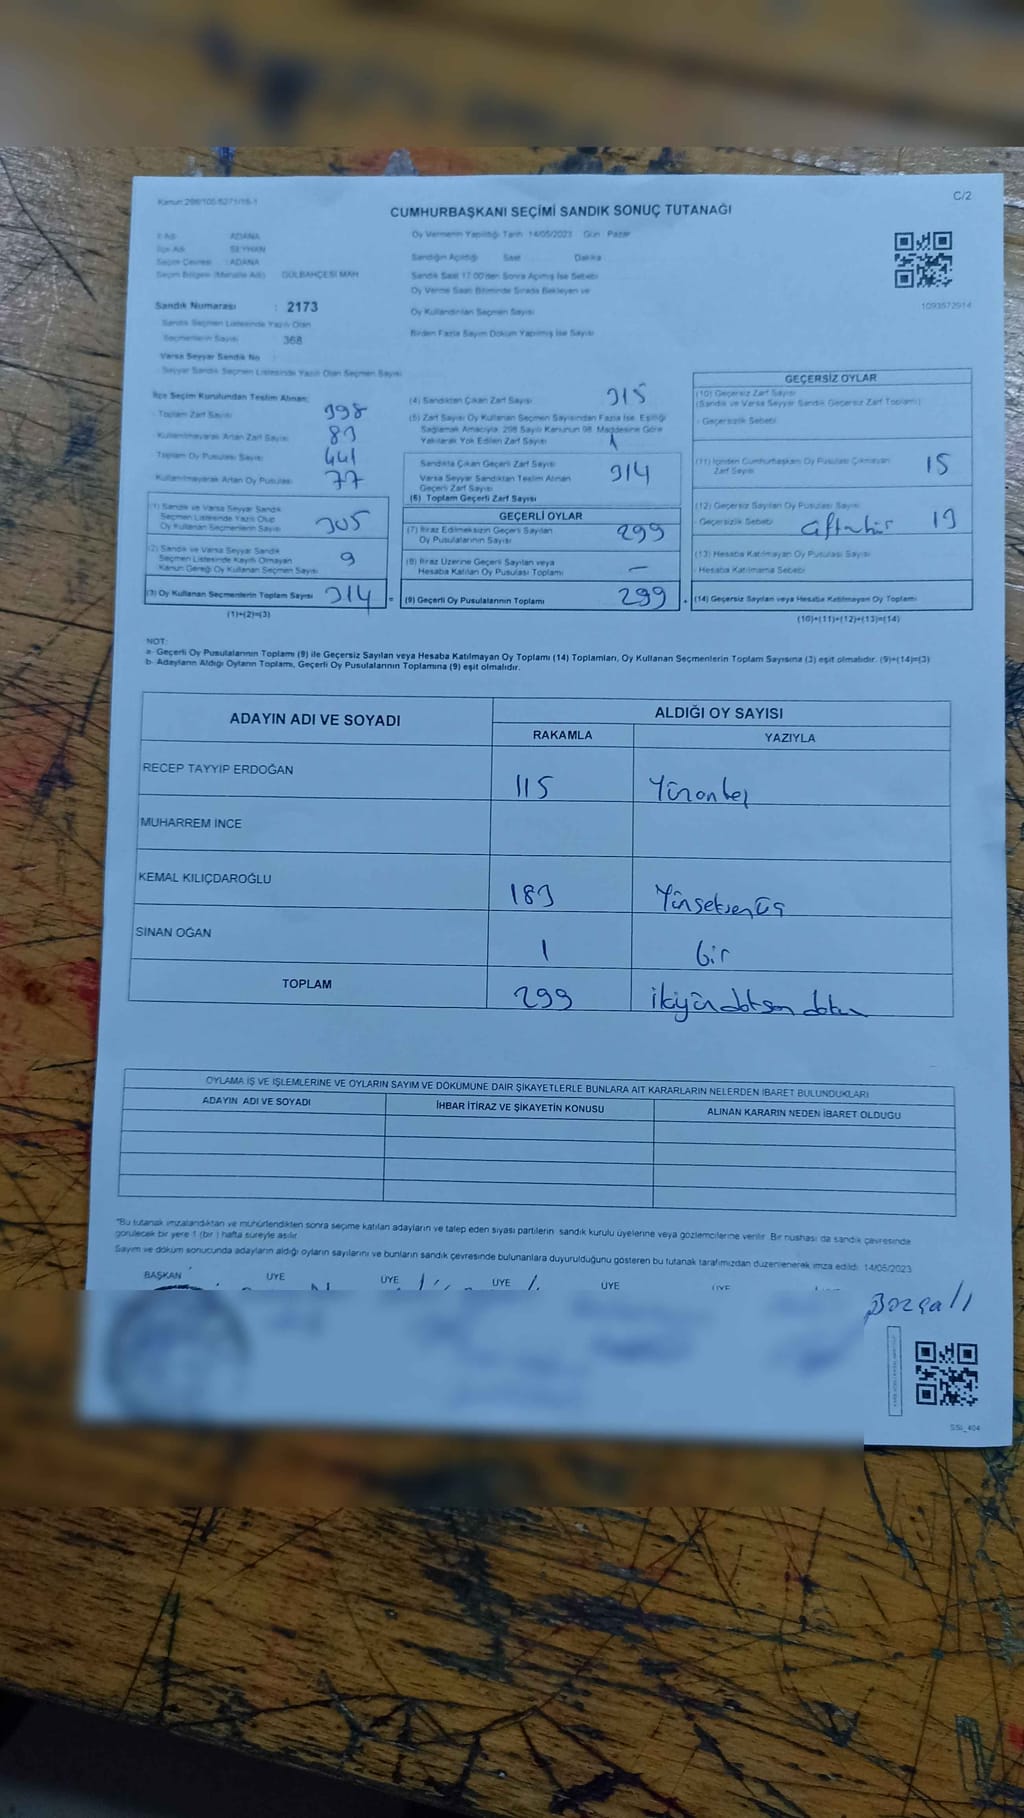 C/2
Kanun:298/105-6271/16-1
CUMHURBAŞKANI SEÇİMİ SANDIK SONUÇ TUTANAĞI
İl Adı : ADANA
İlçe Adı : SEYHAN
Seçim Çevresi : ADANA
Seçim Bölgesi (Mahalle Adı) : GÜLBAHÇESİ MAH
Sandık Numarası : 2173
Sandık Seçmen Listesinde Yazılı Olan
Seçmenlerin Sayısı 368
Varsa Seyyar Sandık No
Seyyar Sandık Seçmen Listesinde Yazılı Olan Seçmen Sayısı
Oy Vermenin Yapıldığı Tarih 14/05/2023 Gün : Pazar
Sandığın Açıldığı Saat Dakika
Sandık Saat 17:00'den Sonra Açılmış İse Sebebi
Oy Verme Saati Bitiminde Sırada Bekleyen ve
Oy Kullandırılan Seçmen Sayısı
Birden Fazla Sayım Döküm Yapılmış İse Sayısı
1093572914
İlçe Seçim Kurulundan Teslim Alınan:
Toplam Zarf Sayısı 398
Kullanılmayarak Artan Zarf Sayısı 83
Toplam Oy Pusulası Sayısı 441
Kullanılmayarak Artan Oy Pusulası 77
(1) Sandık ve Varsa Seyyar Sandık
Seçmen Listesinde Yazılı Olup
Oy Kullanan Seçmenlerin Sayısı 305
(2) Sandık ve Varsa Seyyar Sandık
Seçmen Listesinde Kayıtlı Olmayan
Kanun Gereği Oy Kullanan Seçmen Sayısı 9
(3) Oy Kullanan Seçmenlerin Toplam Sayısı 314
(1)+(2)=(3)
(4) Sandıktan Çıkan Zarf Sayısı 315
(5) Zarf Sayısı Oy Kullanan Seçmen Sayısından Fazla İse, Eşitliği
Sağlamak Amacıyla, 298 Sayılı Kanunun 98. Maddesine Göre
Yakılarak Yok Edilen Zarf Sayısı 1
Sandıkta Çıkan Geçerli Zarf Sayısı
Varsa Seyyar Sandıktan Teslim Alınan
Geçerli Zarf Sayısı
(6) Toplam Geçerli Zarf Sayısı 314
GEÇERLİ OYLAR
(7) İtiraz Edilmeksizin Geçerli Sayılan
Oy Pusulalarının Sayısı 299
(8) İtiraz Üzerine Geçerli Sayılan veya
Hesaba Katılan Oy Pusulası Toplamı —
= (9) Geçerli Oy Pusulalarının Toplamı 299
GEÇERSİZ OYLAR
(10) Geçersiz Zarf Sayısı
(Sandık ve Varsa Seyyar Sandık Geçersiz Zarf Toplamı)
Geçersizlik Sebebi
(11) İçinden Cumhurbaşkanı Oy Pusulası Çıkmayan
Zarf Sayısı 15
(12) Geçersiz Sayılan Oy Pusulası Sayısı
Geçersizlik Sebebi
(13) Hesaba Katılmayan Oy Pusulası Sayısı
Hesaba Katılmama Sebebi
+ (14) Geçersiz Sayılan veya Hesaba Katılmayan Oy Toplamı
(10)+(11)+(12)+(13)=(14)
NOT:
a- Geçerli Oy Pusulalarının Toplamı (9) ile Geçersiz Sayılan veya Hesaba Katılmayan Oy Toplamı (14) Toplamları, Oy Kullanan Seçmenlerin Toplam Sayısına (3) eşit olmalıdır. (9)+(14)=(3)
b- Adayların Aldığı Oyların Toplamı, Geçerli Oy Pusulalarının Toplamına (9) eşit olmalıdır.
ADAYIN ADI VE SOYADI ALDIĞI OY SAYISI
RAKAMLA YAZIYLA
RECEP TAYYİP ERDOĞAN 115 Yüzonbeş
MUHARREM İNCE
KEMAL KILIÇDAROĞLU 183 Yüzseksenüç
SİNAN OĞAN 1 bir
TOPLAM 299 ikiyüzdoksan dokuz
OYLAMA İŞ VE İŞLEMLERİNE VE OYLARIN SAYIM VE DÖKÜMÜNE DAİR ŞİKAYETLERLE BUNLARA AİT KARARLARIN NELERDEN İBARET BULUNDUKLARI
ADAYIN ADI VE SOYADI İHBAR İTİRAZ VE ŞİKAYETİN KONUSU ALINAN KARARIN NEDEN İBARET OLDUĞU
*Bu tutanak imzalandıktan ve mühürlendikten sonra seçime katılan adayların ve talep eden siyasi partilerin sandık kurulu üyelerine veya gözlemcilerine verilir. Bir nüshası da sandık çevresinde
görülecek bir yere 1 (bir) hafta süreyle asılır.
Sayım ve döküm sonucunda adayların aldığı oyların sayılarını ve bunların sandık çevresinde bulunanlara duyurulduğunu gösteren bu tutanak tarafımızdan düzenlenerek imza edildi. 14/05/2023
BAŞKAN ÜYE ÜYE ÜYE ÜYE ÜYE
Bozçalı
SSL_404